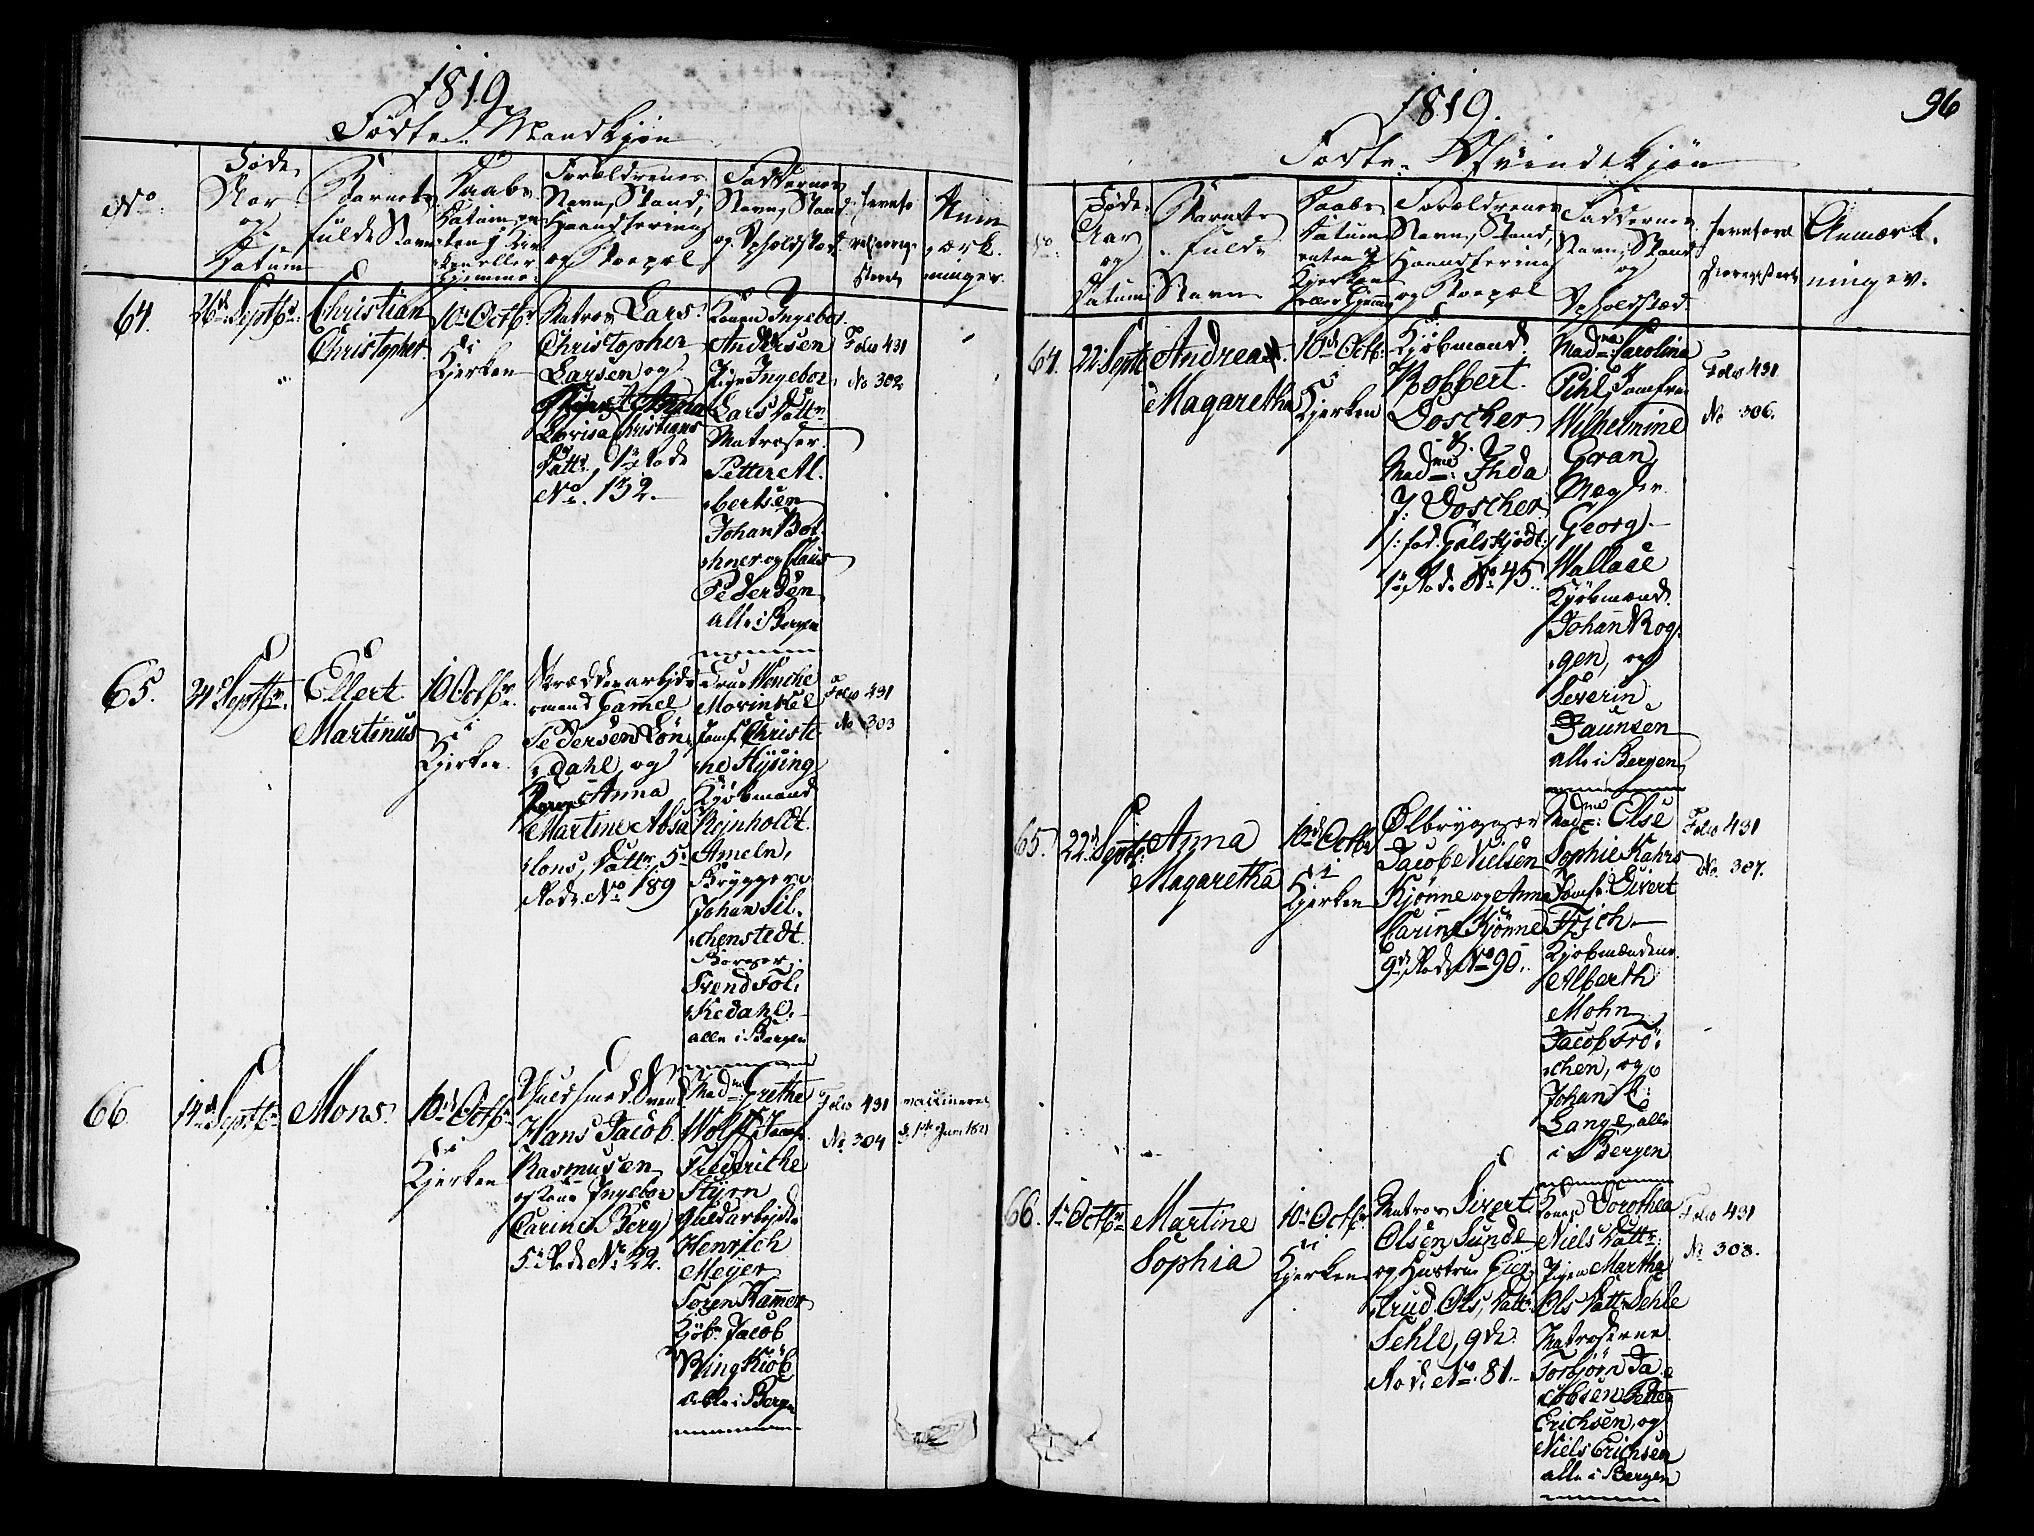 1819.
Fødte Mandkjøn
No.
Føde
Aar
og
Datum
Barnets
fulde Navn
Daabs
Datum, en
ten i Kir
ken eller
hjemme
Forældrenes
Navn, Stand,
Haandtering
og Bopæl
Faddernes
Navn, Stand
og Opholdsted
Anm
ærk
ninger.
64.
26d Septbr.
Christian
Christopher
10d Octbr
i
Kjerken
Matros Lars
Christopher
Larsen og
Anna
Lovisa Christians
Datt., 1ste Rode
No. 132.
Konen Ingebor
Andersen
Pige Ingebor
Lars Datt.
Matroser
Petter Al
bertsen
Johan Bol
hner og Claus
Pedersen
alle i Bergen
Folio 431
No 302
65.
24d Septbr.
Ellert
Martinus
10 Octbr.
i
Kjerken
Skrædderarbejds
mand Gamel
Pedersen Løn
dahl og
Kone Anna
Martine Absa
lons Datter, 5te
Rode No 189
Fruer Wenche
Morinkel
Jomf. Christi
ne Hysing
Kjøbmand
Reinholdt
Ameln,
Brygger
Johan Sil
chenstedt
Borger
Svend Fol
kedahl.
alle i Bergen
Folio 431
No 303
66.
14d Septbr
Mons.
10d Octbr.
i
Kjerken
Guldsmed Svend
Hans Jacob
Rasmusen
og Kone Ingebor
Carina Berg
5te Rode No 22.
Madme Grethe
Wolff Jomf.
Friderithe
Styrn
Guldarbejder
Henrich
Meyer
Søren Hamer
Kjøb. Jacob
Ring Kiøb
alle i Bergen
Folio 431
No 304
vaccineret
d. 1ste Juni 1821
96
1819.
Fødte Qvindekjøn
No.
Føde
Aar
og
Datum
Barnets
fulde
Navn
Daabs
Datum
enten i
Kjerken
eller hjemme
Forældrenes
Navn, Stand,
Haandtering
og Bopæl
Faddernes
Navn, Stand
og
Opholdsted
Anmærk
ninger.
64.
22 Septb
Andrea
Magaretha
10d Octb.
i
Kjerken
Kjøbmand
Bobbert
Doscher
&
Madme: Ihda
J: Doscher
/: fød. Galskjødt:/
1ste Rode No 45.
Madme: Carolina
Pihl, Jomfru
Wilhelmine
Gran
Mægler
Georg
Wallace
Kjøbmænd
Johan Rog
gen, og
Severin
Jaunsen
alle i Bergen
Folio 431
No 306.
65.
22d Septb.
Anna
Magaretha
10d Octbr
i
Kjerken
Ølbrygger
Jacob Nielsen
Kjønne og Anna
Carine Kjønne
9de Rode No 90.
Madme: Else
Sophie Kahrs
Jomfr. Sivert
Frich
Kjøbmændene
Alberth
Mohn
Jacob Frö
chen, og
Johan A:
Lange, alle
i Bergen
Folio 431
No. 307.
66.
1te Octbr
Martine
Sophia
10d Octbr
i
Kjerken
Matros Sivert
Olsen Sunde
og Hustru Gier
trud Ols Datt.
Sehle, 9de
Rode No. 81.
Kone Dorothea
Niels Datt.
Pigen Martha
Ols Datt. Sehle
Matroserne
Torbjörn Ja
cobsen Petter
Erichsen, og
Niels Erichsen
alle i Bergen
Folio 431
No 308.